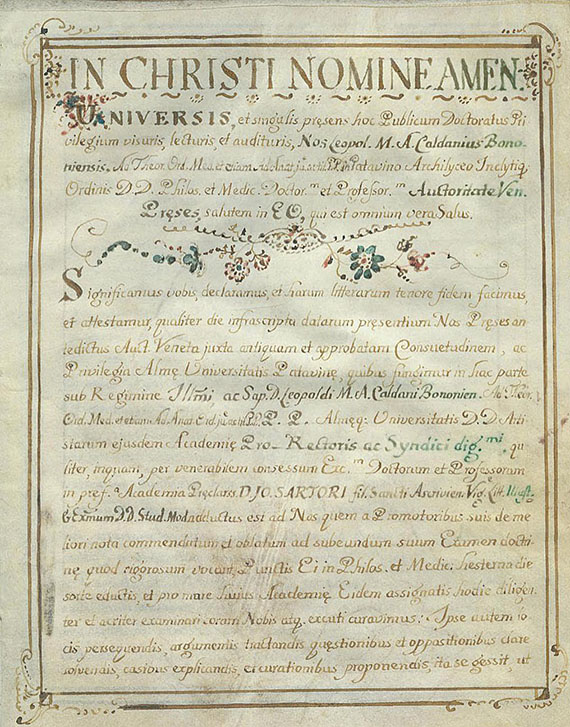 IN CHRISTI NOMINE AMEN.
UNIVERSIS, et singulis præsens hoc Publicum Doctoratus Pri
vilegium visuris, lecturis et audituris, Nos Leopol. M. A. Caldanius Bono-
niensis. Ad Theor. Ord. Med. et etiam Ad Anat. in Patavino Archilyceo Inclytiq.
Ordinis D. D. Philos. et Medic. Doctor.m et Profeſsor.m Auctoritate Ven.
Pręses, salutem in EO, qui est omnium vera Salus.
Significamus vobis, declaramus, et harum litterarum tenore fidem facimus,
et attestamur, qualiter die infrascripta datarum pręsentium Nos Pręses an
tedictus Auct. Veneta juxta antiquam et approbatam Consuetudinem, ac
Privilegia Almę Universitatis Patavinę, quibus fungimur in hac parte
sub Regimine Illm̃i ac Sap. D. Leopoldi M. A. Caldani Bononien. Ad Theor.
Ord. Med. et etiam Ad Anat. P. P. Almęq: Universitatis D. D Arti-
starum ejusdem Academię Pro-Rectoris ac Syndici dig.mi, qu
liter inquam, per venerabilem consessum Exc.m Doctorum et Profeſsorum
in pref.a Academia Pręclaris. D. JO. SARTORI fil. Sancti
Stud. Mod. adductus est ad Nos quem a Promotoribus suis de me
liori nota commendatum et oblatum ad subeundum suum Examen doctri
nę quod rigorosum vocant, Punctis Ei in Philos. et Medic. hesterna die
sorte eductis, et pro more hujus Academię Eidem assignatis hodie diligen
ter et acriter examinari coram Nobis atq. excuti curavimus: Ipse autem lo
cis persequendis, argumentis tractandis, quęstionibus et oppositionibus clare
solvendis, casibus explicandis, et curationibus proponendis, ita se gessit, ut